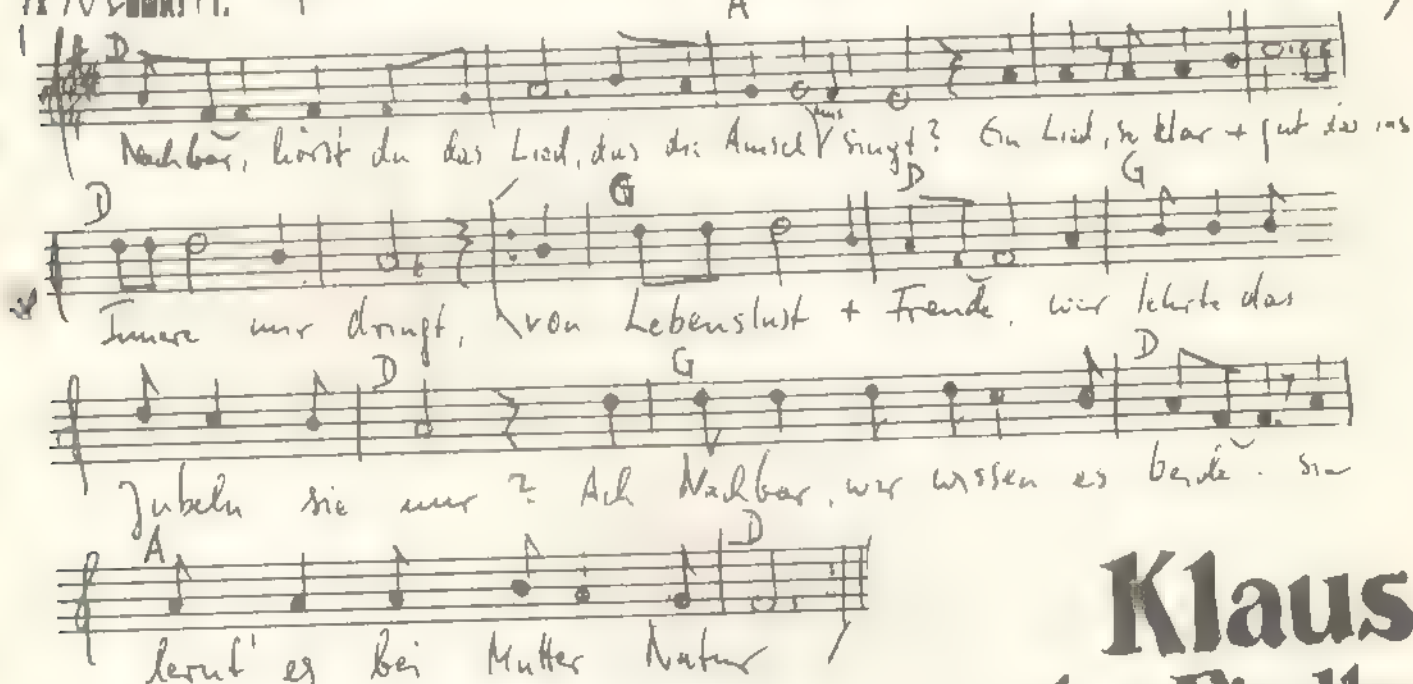 A
D
Nachbar, hörst du das Lied, das die Amsel uns singt? Ein Lied, so klar + gut das ins
D G D G
Innere mir dringt, von Lebenslust + Freude, wer lehrte das
D G D
Jubeln sie nur? Ach Nachbar, wir wissen es beide. Sie
A D
lernt' es bei Mutter Natur
Klaus